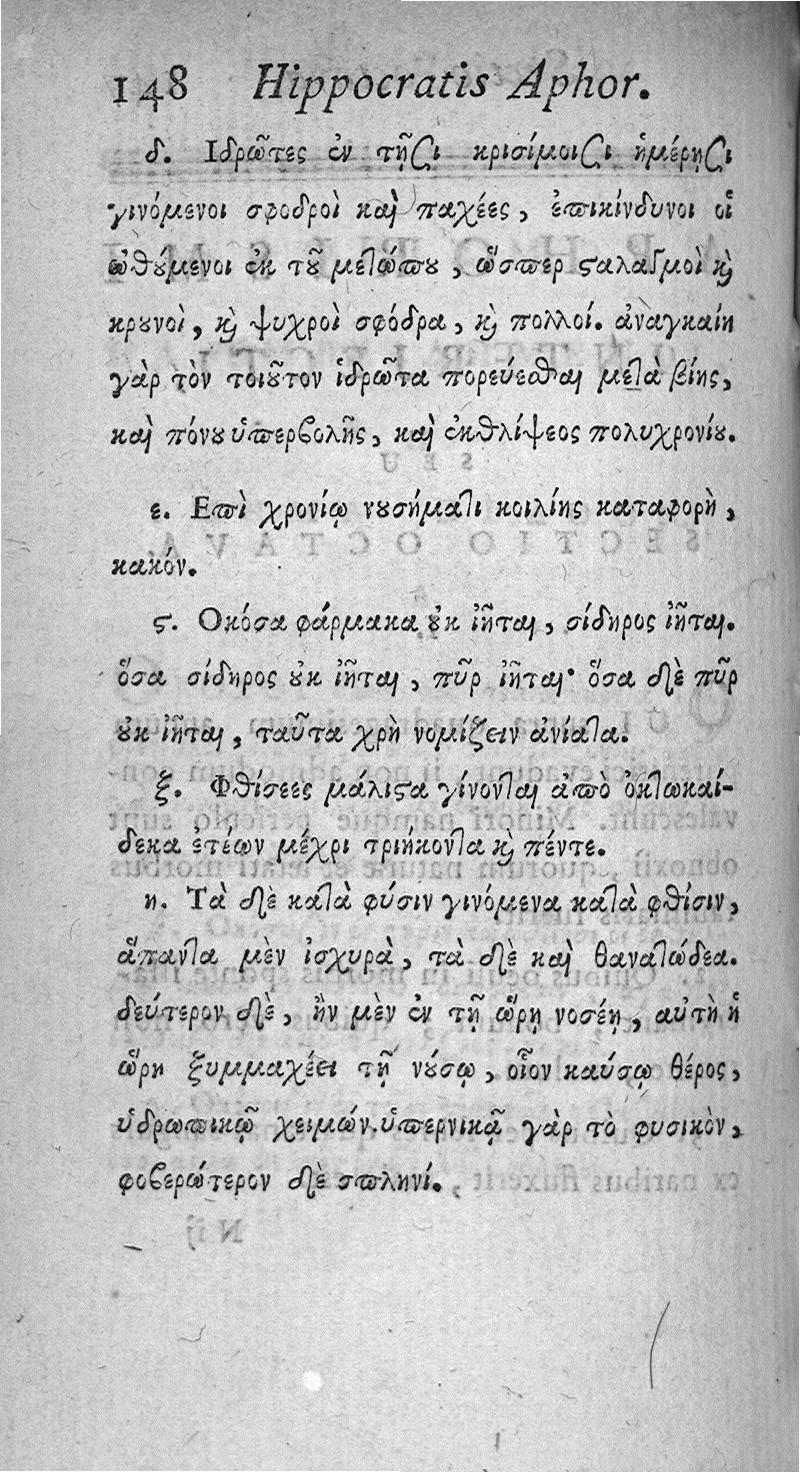 148 Hippocratis Aphor.
δ. Ιδρῶτες ἐν τῇσι κρισίμοισι ἡμέρῃσι
γινόμενοι σφοδροὶ καὶ παχέες, ἐπικίνδυνοι οἱ
ὠθούμενοι ἐκ τοῦ μετώπου, ὥσπερ σταλαγμοὶ καὶ
κρουνοὶ, καὶ ψυχροὶ σφόδρα, καὶ πολλοί. ἀναγκαίη
γὰρ τὸν τοιοῦτον ἱδρῶτα πορεύεσθαι μετὰ βίης,
καὶ πόνου ὑπερβολῆς, καὶ ἐκθλίψεος πολυχρονίου.
ε. Επὶ χρονίῳ νουσήματι κοιλίης καταφορὴ,
κακόν.
ϛ. Οκόσα φάρμακα οὐκ ἰῆται, σίδηρος ἰῆται.
ὅσα σίδηρος οὐκ ἰῆται, πῦρ ἰῆται· ὅσα δὲ πῦρ
οὐκ ἰῆται, ταῦτα χρὴ νομίζειν ἀνίατα.
ξ. Φθίσεες μάλιστα γίνονται ἀπὸ ὀκτωκαί-
δεκα ἐτέων μέχρι τριήκοντα καὶ πέντε.
η. Τὰ δὲ κατὰ φύσιν γινόμενα κατὰ φθίσιν,
ἅπαντα μὲν ἰσχυρὰ, τὰ δὲ καὶ θανατώδεα.
δεύτερον δὲ, ἢν μὲν ἐν τῇ ὥρῃ νοσέῃ, αὐτὴ ἡ
ὥρη ξυμμαχέει τῇ νούσῳ, οἷον καύσῳ θέρος,
ὑδρωπικῷ χειμών. ὑπερνικᾷ γὰρ τὸ φυσικὸν,
φοβερώτερον δὲ σπληνί.